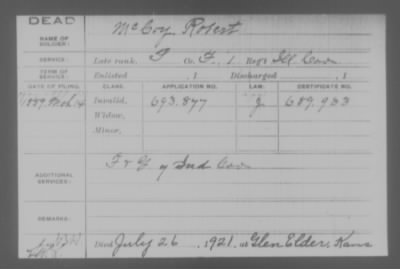 DEAD
NAME OF SOLDIER: McCoy, Robert
SERVICE: Late rank, P Co. F, 1 Reg't Ill. Cav.
TERM OF SERVICE: Enlisted , 1 Discharged , 1
DATE OF FILING. CLASS. APPLICATION NO. LAW. CERTIFICATE NO.
1889 Mch 14 Invalid, 693.877 J 689.983
Widow,
Minor,
ADDITIONAL SERVICES: F & G 7 Ind Cav
REMARKS:
Died July 26, 1921, at Glen Elder, Kans